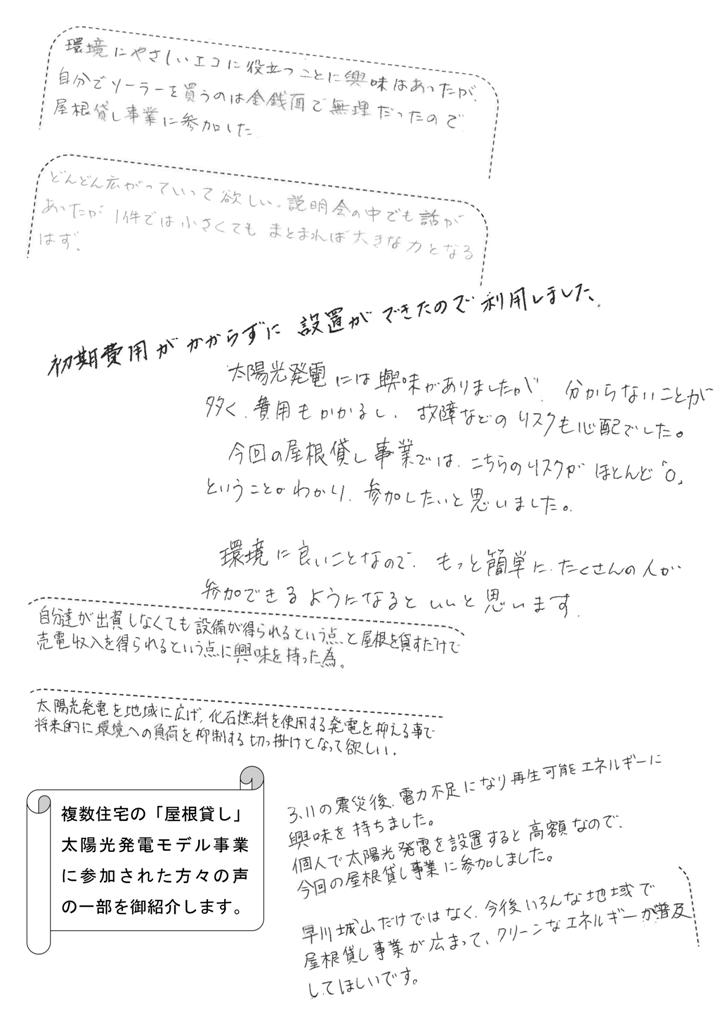 環境にやさしいエコに役立つことに興味はあったが、
自分でソーラーを買うのは金銭面で無理だったので
屋根貸し事業に参加した
どんどん広がっていって欲しい。説明会の中でも話が
あったが 1件では小さくても まとまれば大きな力となる
はず。
初期費用がかからずに 設置ができたので利用しました。
太陽光発電には興味がありましたが、分からないことが
多く、費用もかかるし、故障などのリスクも心配でした。
今回の屋根貸し事業では、こちらのリスクがほとんど「0」
ということがわかり、参加したいと思いました。
環境に良いことなので、もっと簡単に、たくさんの人が
参加できるようになるといいと思います。
自分達が出資しなくても設備が得られるという点と屋根を貸すだけで
売電収入を得られるという点に興味を持った為。
太陽光発電を地域に広げ、化石燃料を使用する発電を抑える事で
将来的に環境への負荷を抑制する切っ掛けとなって欲しい。
複数住宅の「屋根貸し」
太陽光発電モデル事業
に参加された方々の声
の一部を御紹介します。
3.11の震災後、電力不足になり再生可能エネルギーに
興味を持ちました。
個人で太陽光発電を設置すると高額なので、
今回の屋根貸し事業に参加しました。
早川城山だけではなく、今後いろんな地域で
屋根貸し事業が広まって、クリーンなエネルギーが普及
してほしいです。